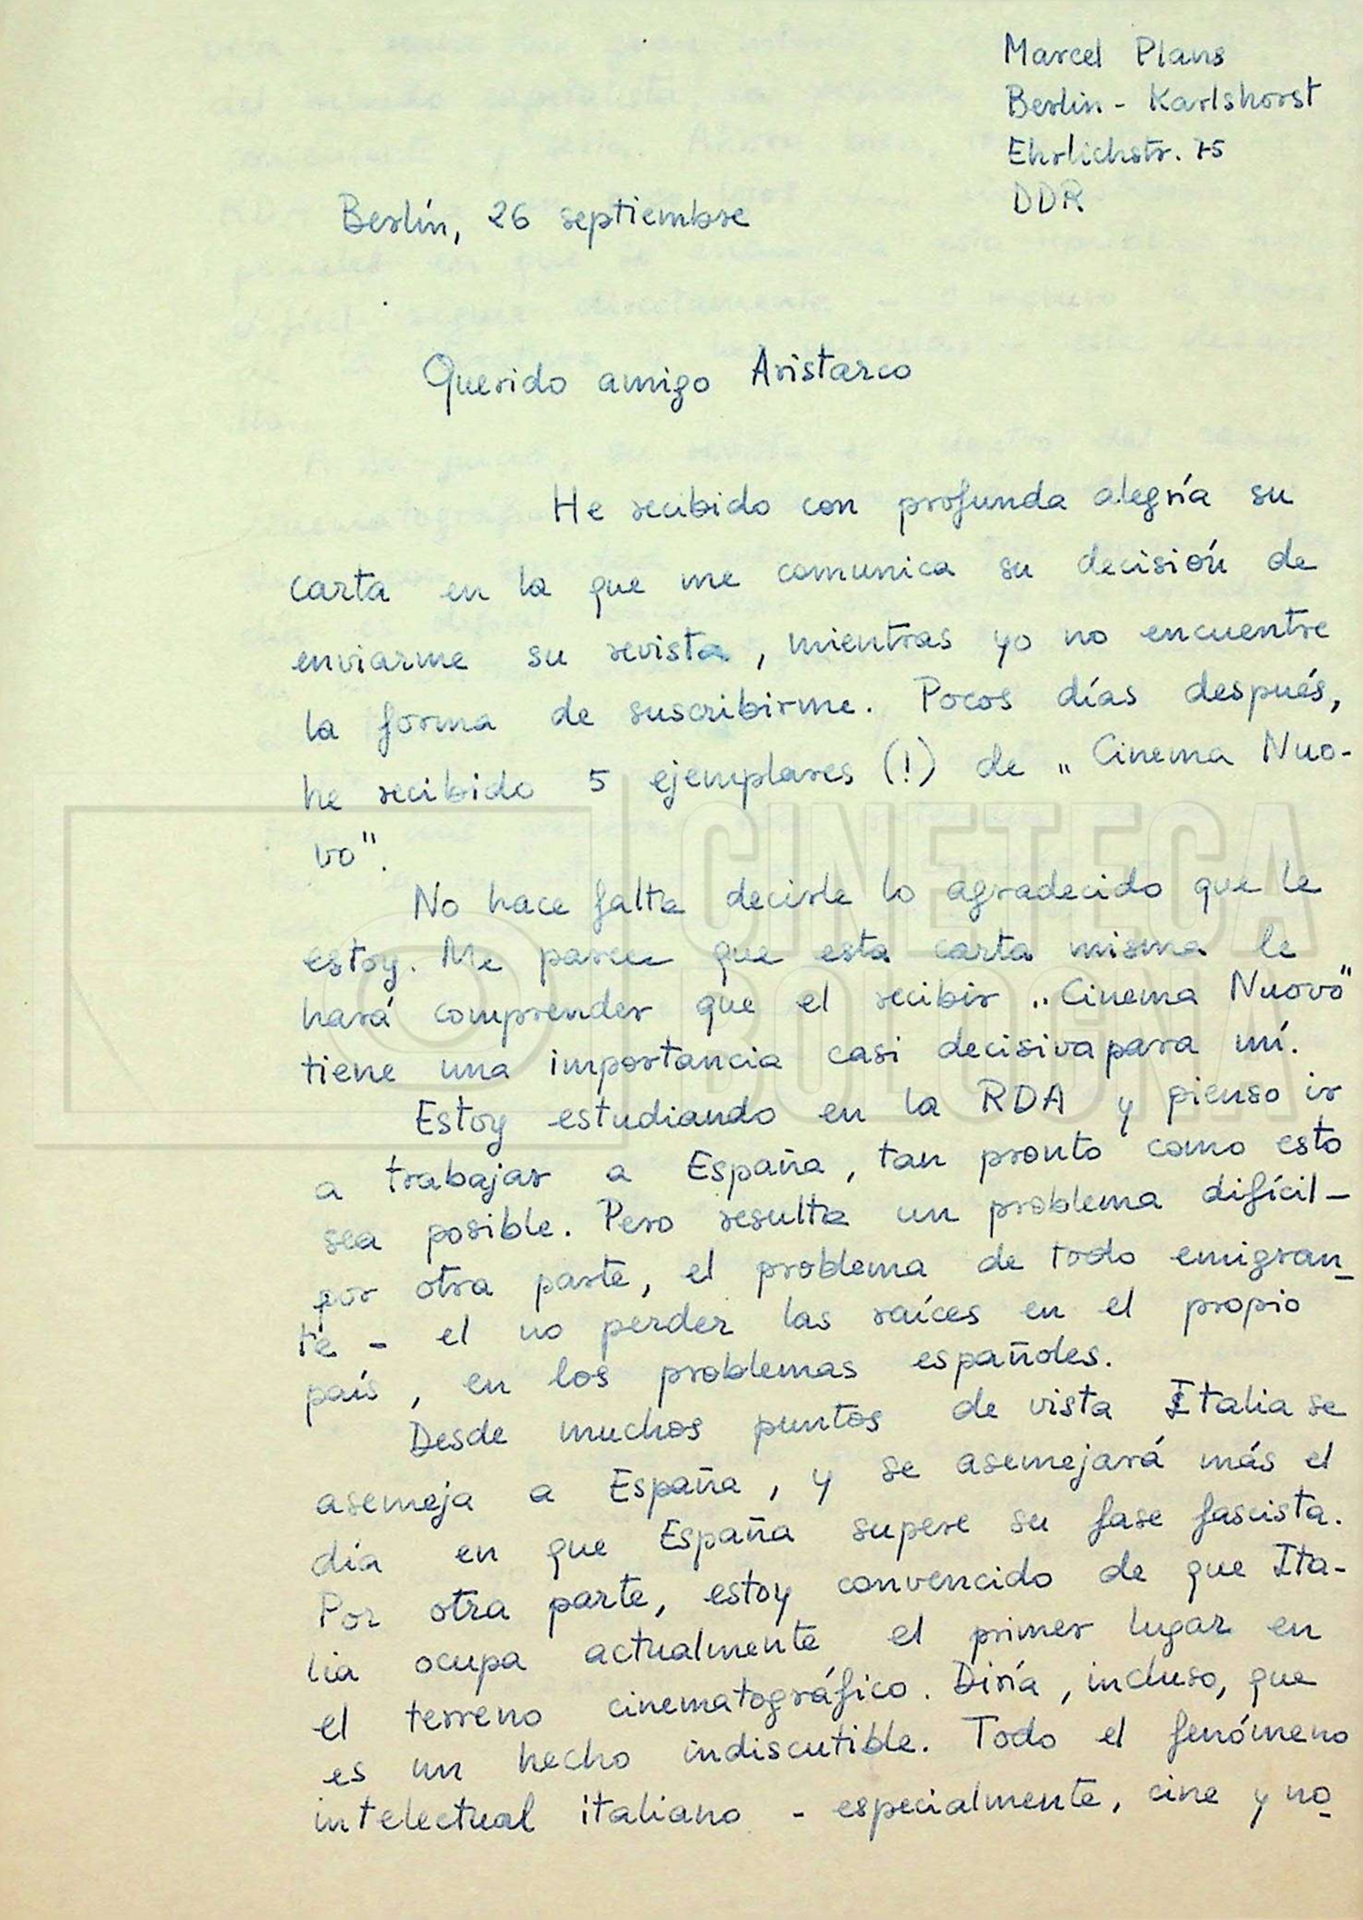 Marcel Plans
Berlin - Karlshorst
Ehrlichstr. 75
DDR
Berlín, 26 septiembre
Querido amigo Aristarco
He recibido con profunda alegría su
carta en la que me comunica su decisión de
enviarme su revista, mientras yo no encuentre
la forma de suscribirme. Pocos días después,
he recibido 5 ejemplares (!) de „Cinema Nuo-
vo".
No hace falta decirle lo agradecido que le
estoy. Me parece que esta carta misma le
hará comprender que el recibir „Cinema Nuovo"
tiene una importancia casi decisiva para mí.
Estoy estudiando en la RDA y pienso ir
a trabajar a España, tan pronto como esto
sea posible. Pero resulta un problema difícil -
por otra parte, el problema de todo emigran-
te - el no perder las raíces en el propio
país, en los problemas españoles.
Desde muchos puntos de vista Italia se
asemeja a España, y se asemejará más el
día en que España supere su fase fascista.
Por otra parte, estoy convencido de que Ita-
lia ocupa actualmente el primer lugar en
el terreno cinematográfico. Diría, incluso, que
es un hecho indiscutible. Todo el fenómeno
intelectual italiano - especialmente, cine y no-
CINETECA
BOLOGNA